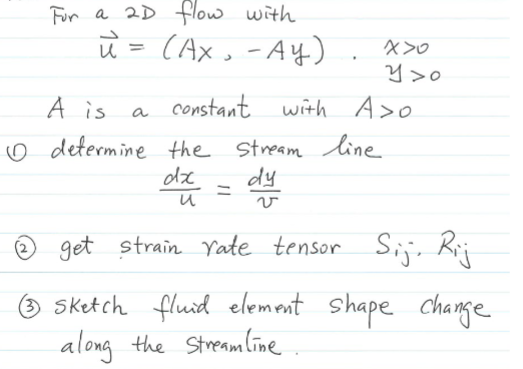 For a 2D flow with
u⃗ = (Ax, -Ay). x>0
y>0
A is a constant with A>0
① determine the stream line
dx/u = dy/v
② get strain rate tensor Sij, Rij
③ sketch fluid element shape change
along the streamline.